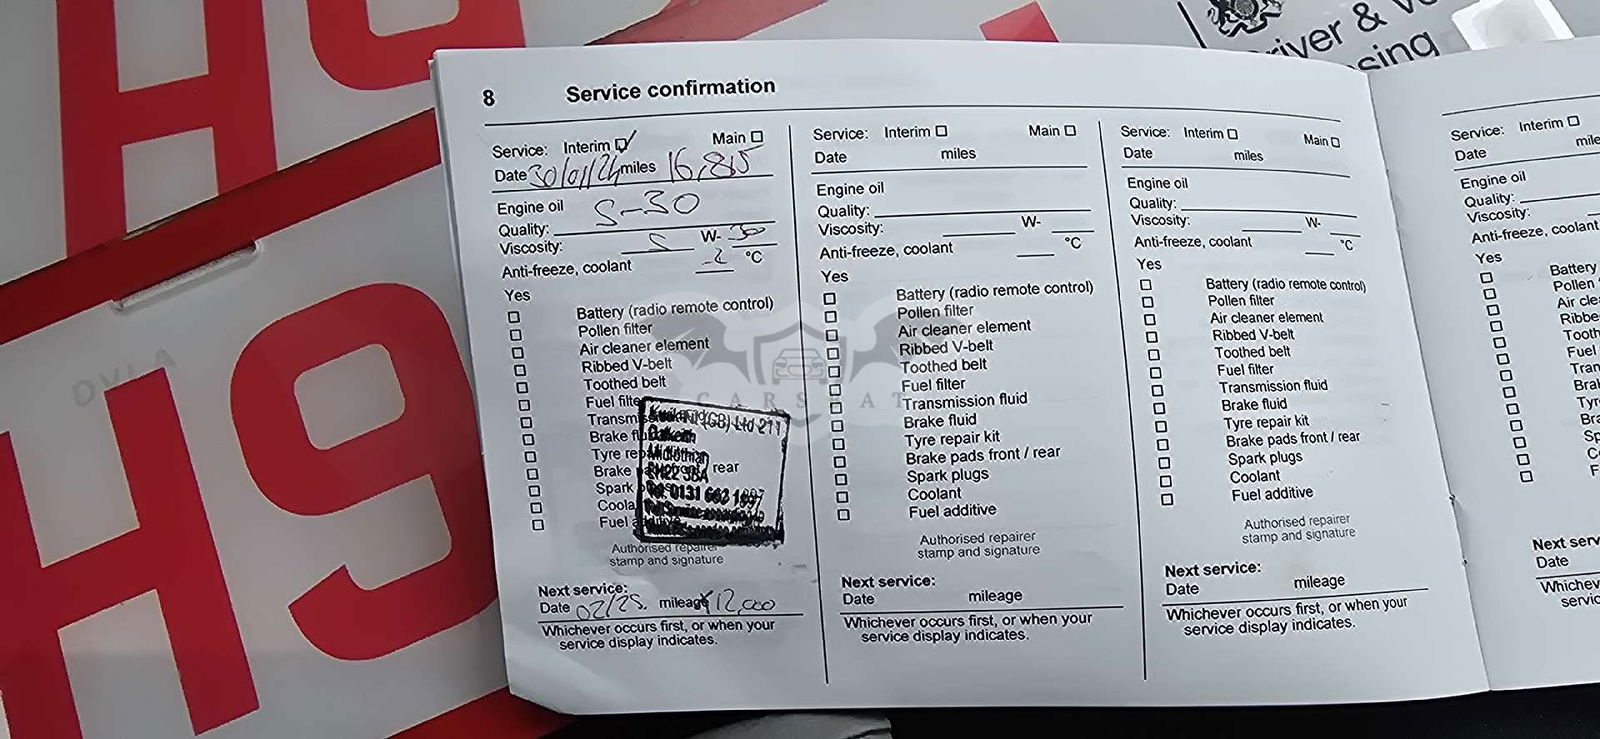 H9
H9
8 Service confirmation
Service: Interim Main
Date 30/01/24 miles 16,815
Engine oil
Quality: S-30
Viscosity: S W- 30
Anti-freeze, coolant -2 °C
Yes
Battery (radio remote control)
Pollen filter
Air cleaner element
Ribbed V-belt
Toothed belt
Fuel filte
Transm
Brake flu
Tyre rep
Brake rear
Spark
Coola
Fuel a
(GB) Ltd 211
Dalkeith
Midlothian
EH22 3BA
Tel: 0131 663
Authorised repairer
stamp and signature
Next service:
Date 02/25. mileage 12,000
Whichever occurs first, or when your
service display indicates.
Service: Interim Main
Date miles
Engine oil
Quality:
Viscosity: W-
Anti-freeze, coolant °C
Yes
Battery (radio remote control)
Pollen filter
Air cleaner element
Ribbed V-belt
Toothed belt
Fuel filter
Transmission fluid
Brake fluid
Tyre repair kit
Brake pads front / rear
Spark plugs
Coolant
Fuel additive
Authorised repairer
stamp and signature
Next service:
Date mileage
Whichever occurs first, or when your
service display indicates.
Service: Interim Main
Date miles
Engine oil
Quality:
Viscosity: W-
Anti-freeze, coolant °C
Yes
Battery (radio remote control)
Pollen filter
Air cleaner element
Ribbed V-belt
Toothed belt
Fuel filter
Transmission fluid
Brake fluid
Tyre repair kit
Brake pads front / rear
Spark plugs
Coolant
Fuel additive
Authorised repairer
stamp and signature
Next service:
Date mileage
Whichever occurs first, or when your
service display indicates.
Service: Interim
Date mile
Engine oil
Quality:
Viscosity:
Anti-freeze, coolant
Yes
Battery
Pollen
Air cle
Ribbe
Tooth
Fuel
Tran
Bra
Ty
Br
Sp
C
F
Next serv
Date
Whichev
servic
river & V
sing
DVLA